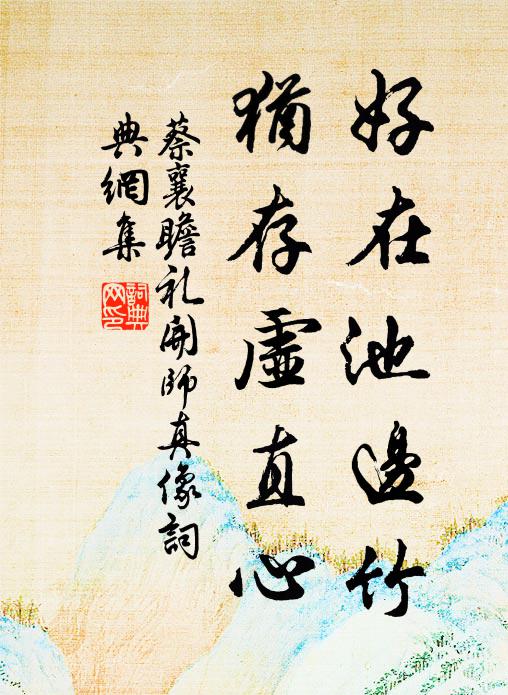 好在池邊竹
猶存虛直心
蔡襄瞻礼開師真像詞
典網集
詞典
网印